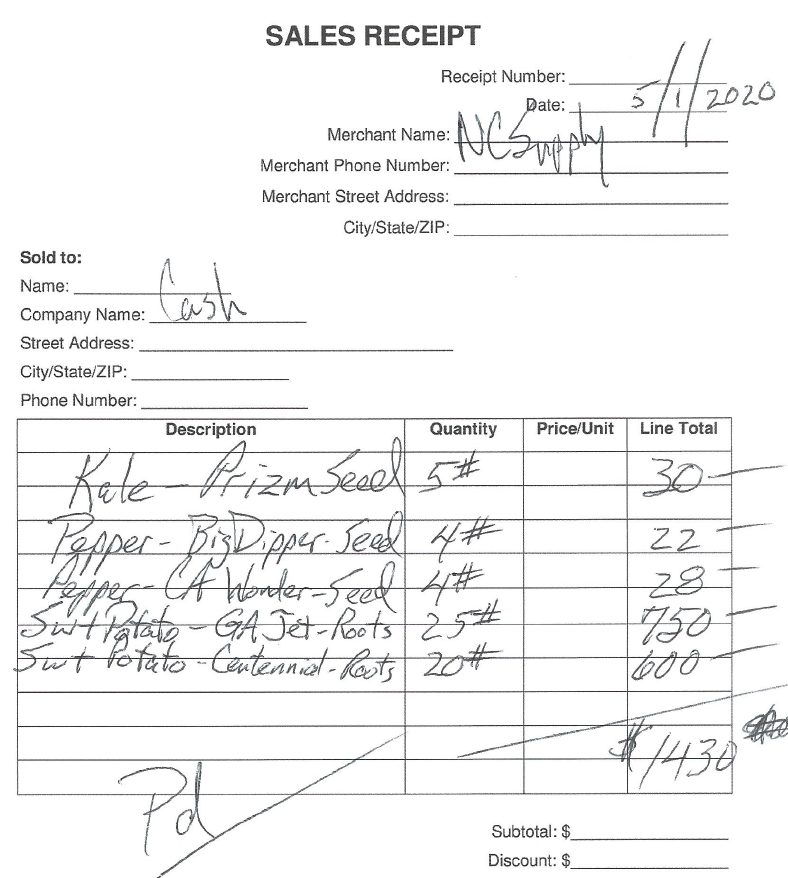 SALES RECEIPT
Receipt Number:
Date: 5/1/2020
Merchant Name: NC Supply
Merchant Phone Number:
Merchant Street Address:
City/State/ZIP:
Sold to:
Name:
Company Name: Cash
Street Address:
City/State/ZIP:
Phone Number:
Description Quantity Price/Unit Line Total
Kale - Prizm Seed 5# 30
Pepper - Big Dipper - Seed 4# 22
Pepper - CA Wonder - Seed 4# 28
Swt Potato - GA Jet - Roots 25# 750
Swt Potato - Centennial - Roots 20# 600
$1430
Pd
Subtotal: $
Discount: $